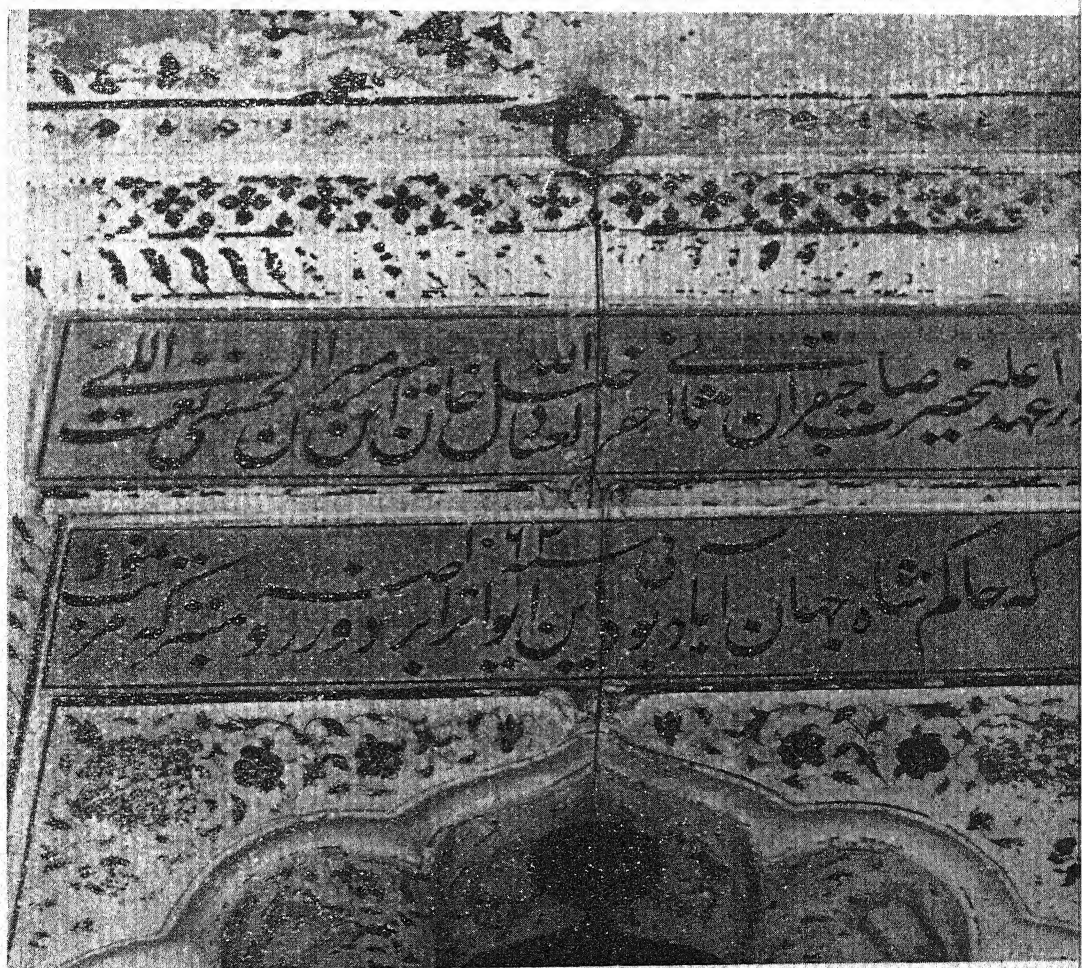 در عهد اعلیحضرت صاحبقران ثانی احقر العباد خلیل الله خان ابن میرمیران الحسینی نعمت اللهی
که حاکم شاه جهان آباد بود این ایوانرا بر دور روضه متبرکه مرتب نمود فی سنه ۱۰۶۳